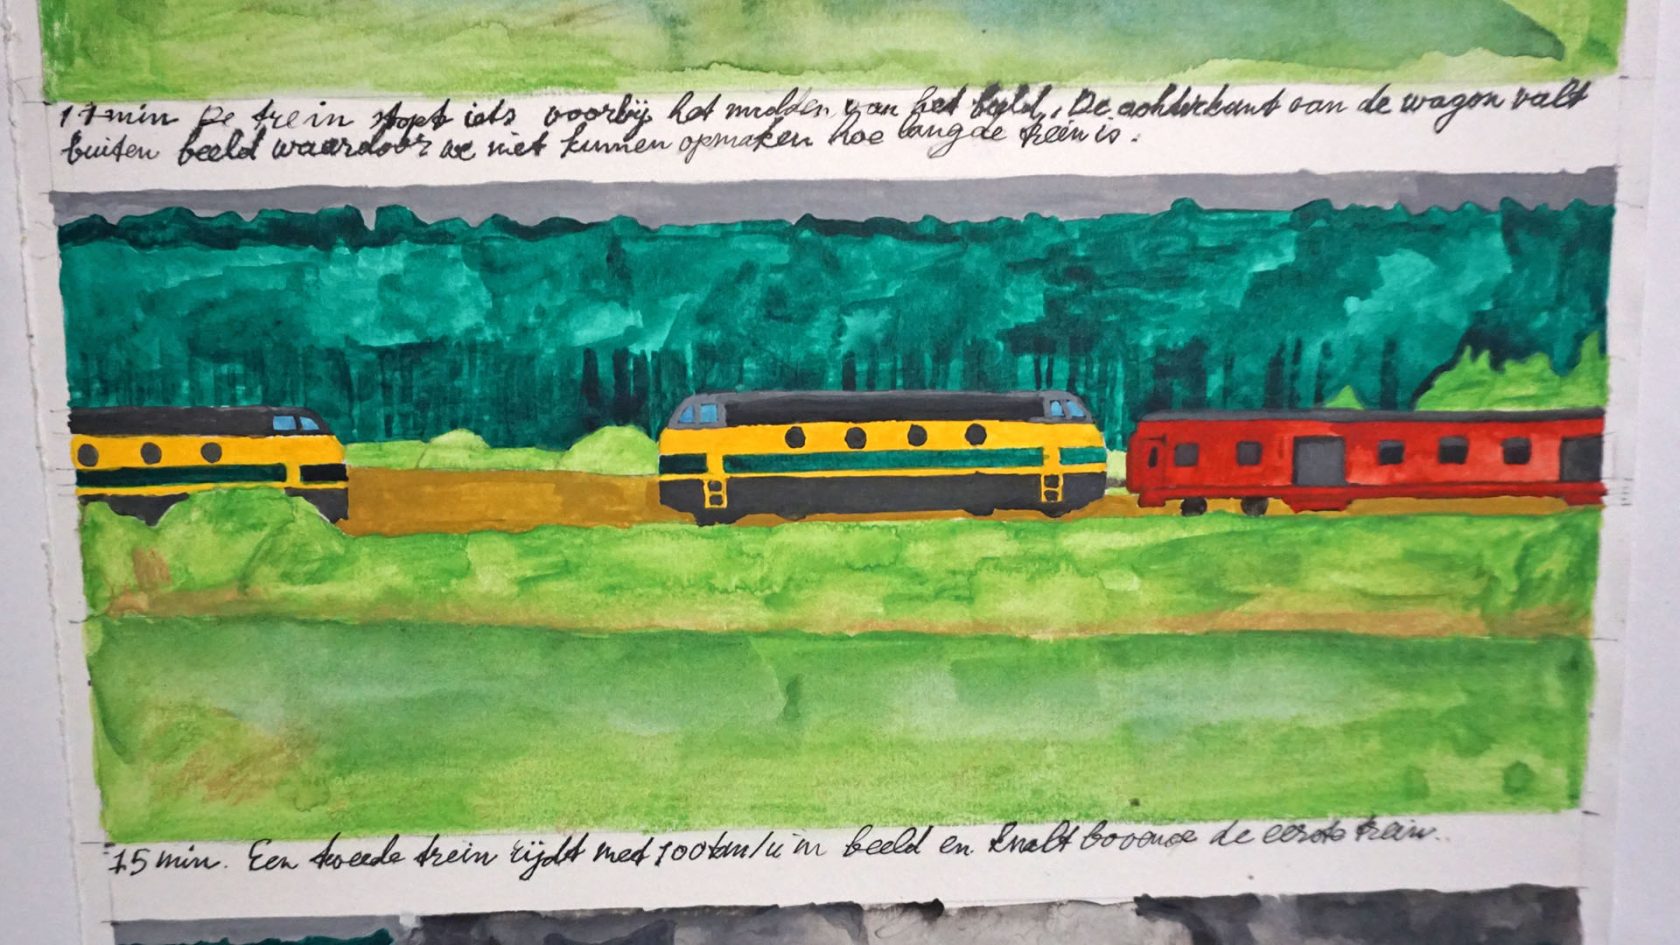 11 min De trein stopt iets voorbij het midden van het beeld. De achterkant van de wagon valt
buiten beeld waardoor we niet kunnen opmaken hoe lang de trein is.
15 min. Een tweede trein rijdt met 100 km/u in beeld en knalt bovenop de eerste trein.